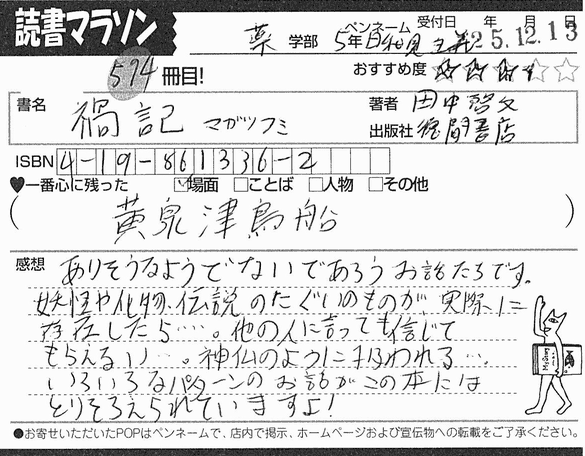 読書マラソン
薬 学部 5年 ペンネーム 日和見主義 受付日 年 月 日 25.12.13
594 冊目! おすすめ度
書名 禍記 マガツフミ 著者 田中啓文
出版社 徳間書店
ISBN 4-19-861336-2
♥一番心に残った ☑場面 □ことば □人物 □その他
( 黄泉津鳥船 )
感想 ありそうなようでないであろうお話たちです。
妖怪や化物、伝説のたぐいのものが、実際に
存在したら…。他の人に言っても信じて
もらえない…。神仏のように扱われる…。
いろいろなパターンのお話がこの本には
とりそろえられていますよ!
●お寄せいただいたPOPはペンネームで、店内で掲示、ホームページおよび宣伝物への転載をご了承ください。